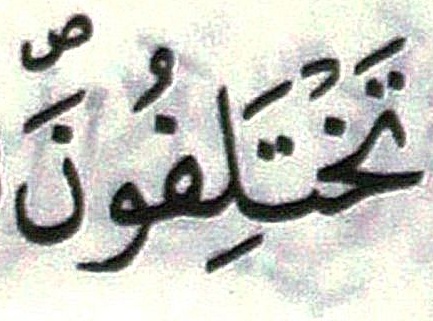 تَخْتَلِفُونَ ۖ ص